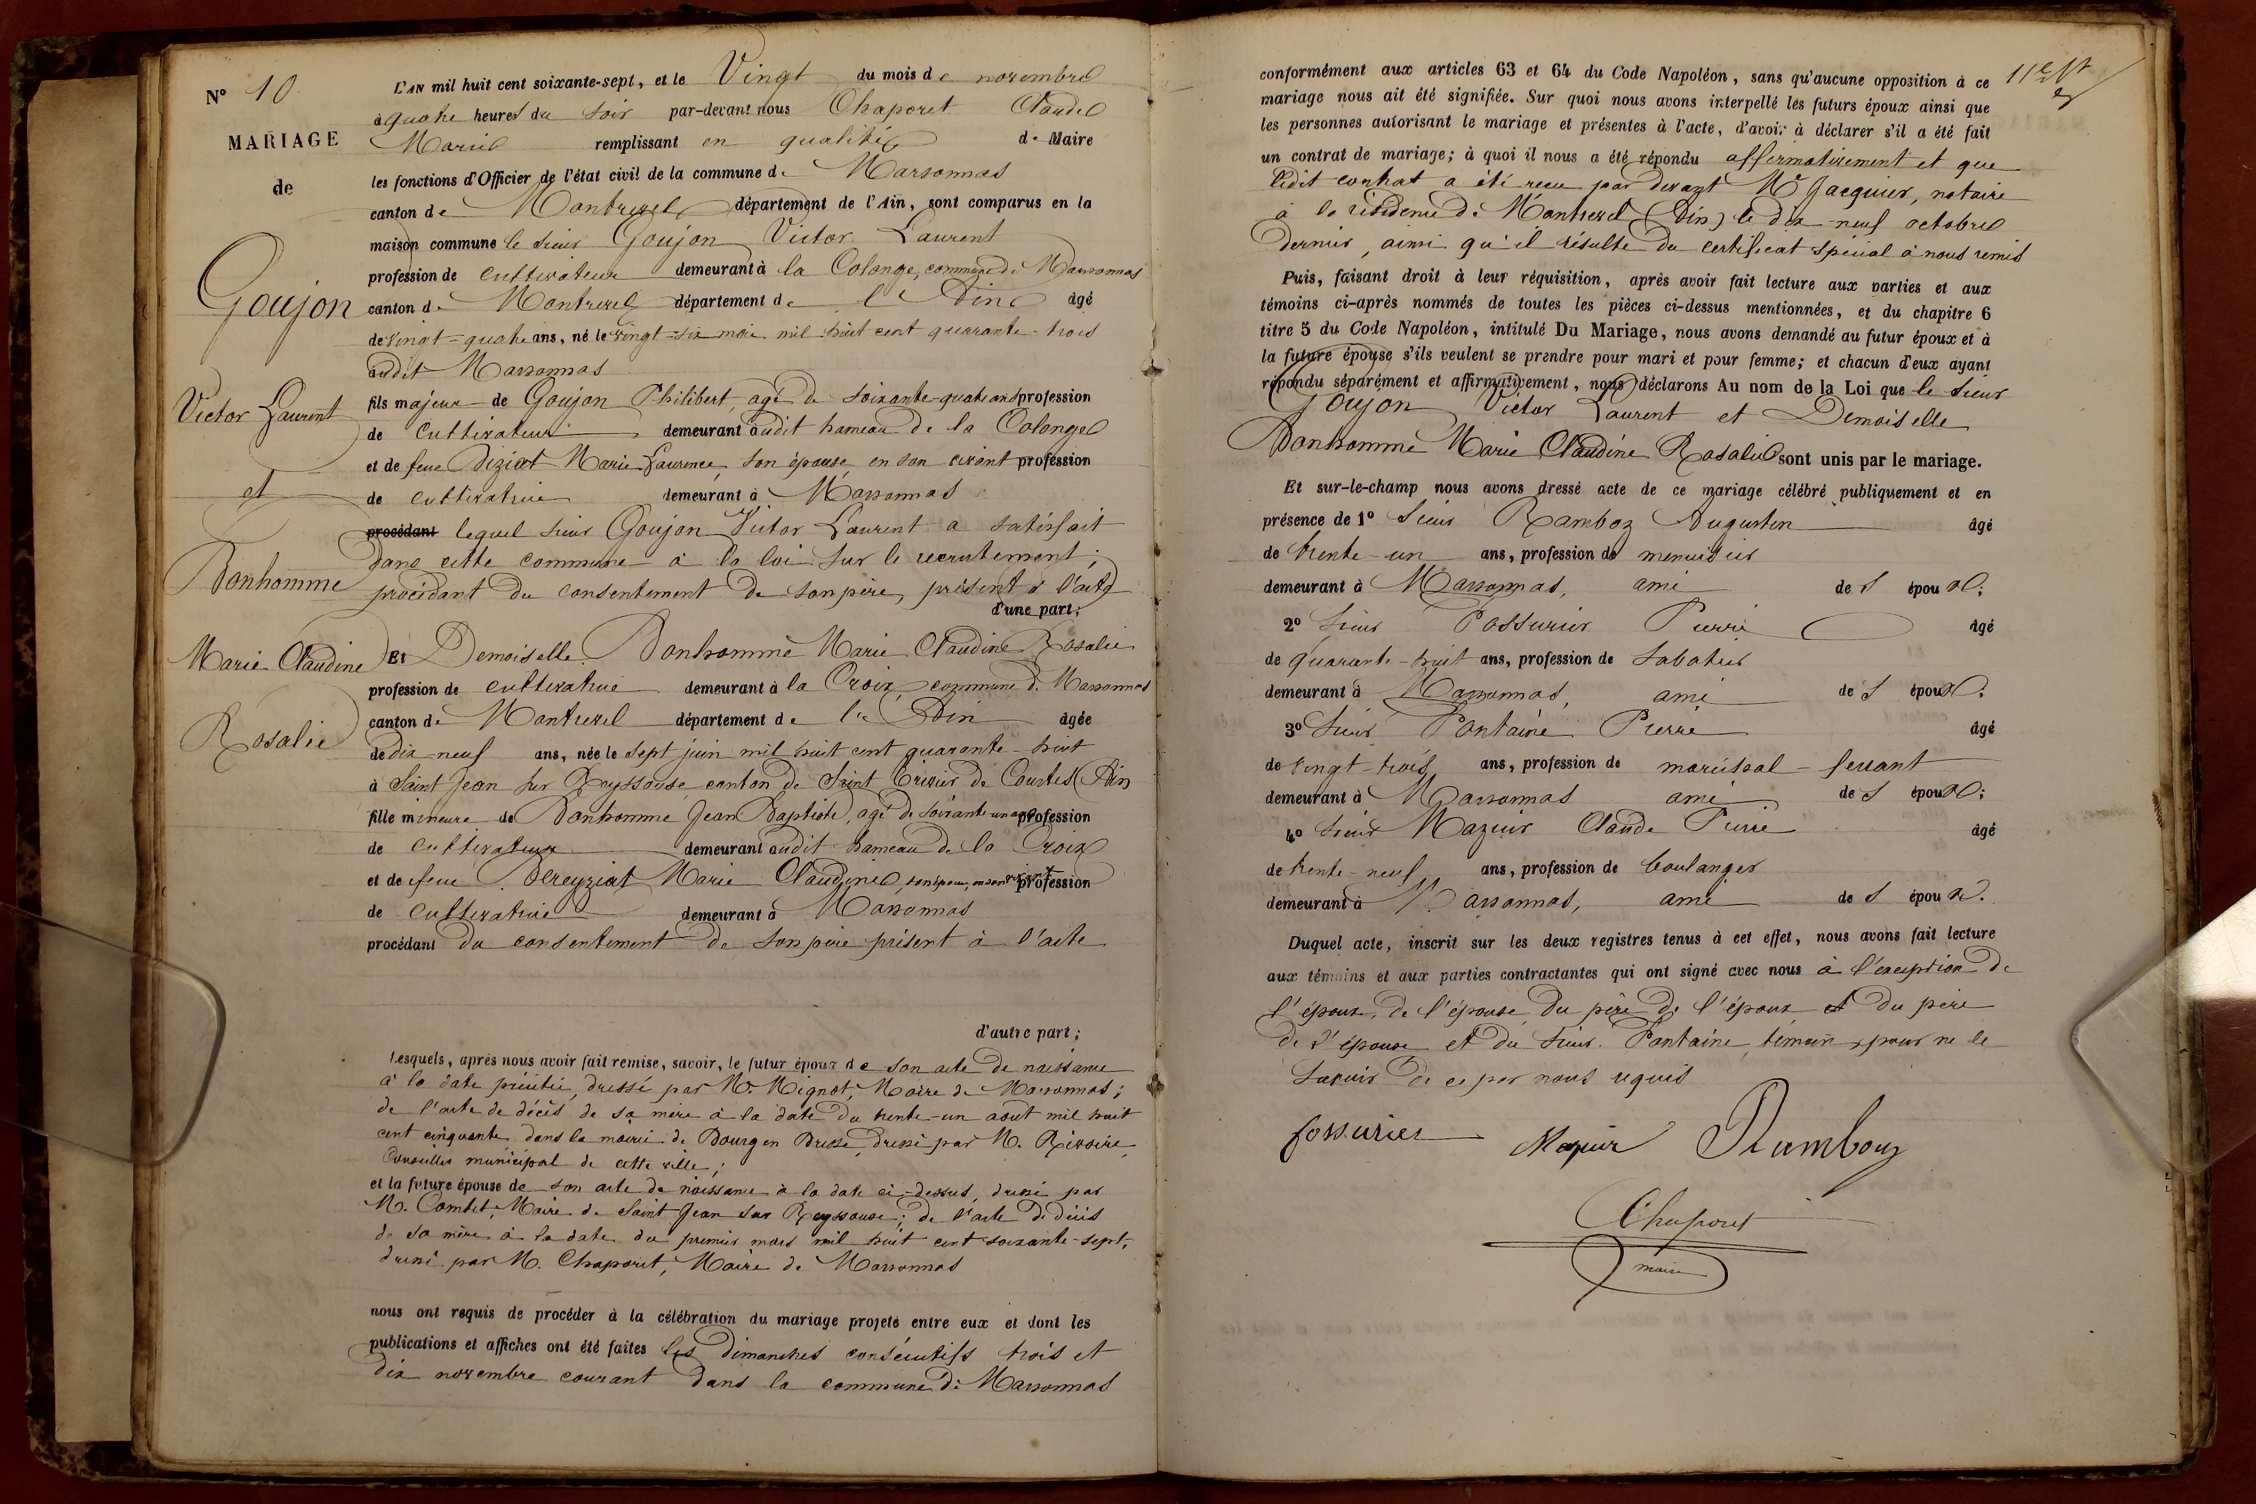 N° 10
MARIAGE
de
Goujon
Victor Laurent
et
Bonhomme
Marie Claudine
Rosalie
L'AN mil huit cent soixante-sept, et le Vingt du mois de novembre
à quatre heures du soir par-devant nous Chaporet Claude
Marie remplissant en qualité de Maire
les fonctions d'Officier de l'état civil de la commune de Marsonnas
canton de Montrevel département de l'Ain, sont comparus en la
maison commune le sieur Goujon Victor Laurent
profession de cultivateur demeurant à la Colonge, commune de Marsonnas
canton de Montrevel département de l'Ain âgé
de vingt-quatre ans, né le vingt-six mai mil huit cent quarante-trois
audit Marsonnas
fils majeur de Goujon Philibert, agé de soixante-quatre ans profession
de cultivateur demeurant audit hameau de la Colonge
et de feue Diziat Marie Laurence, son épouse, en son vivant profession
de cultivatrice demeurant à Marsonnas
procédant lequel sieur Goujon Victor Laurent a satisfait
dans cette commune à la loi sur le recrutement;
procédant du consentement de son père, présent à l'acte
d'une part;
Et Demoiselle Bonhomme Marie Claudine Rosalie
profession de cultivatrice demeurant à la Croix, commune de Marsonnas
canton de Montrevel département de l'Ain âgée
de dix-neuf ans, née le sept juin mil huit cent quarante-huit
à Saint Jean sur Reyssouse canton de Saint Trivier de Courtes (Ain)
fille mineure de Bonhomme Jean Baptiste, agé de soixante un ans profession
de cultivateur demeurant audit hameau de la Croix
et de feue Bereyziat Marie Claudine, son épouse, en son vivant profession
de cultivatrice demeurant à Marsonnas
procédant du consentement de son père présent à l'acte
d'autre part;
Lesquels, après nous avoir fait remise, savoir, le futur époux de son acte de naissance
à la date précitée, dressé par M. Mignot, Maire de Marsonnas;
de l'acte de décès de sa mère à la date du trente-un août mil huit
cent cinquante dans la mairie de Bourg en Bresse, dressé par M. Rivoire,
Conseiller municipal de cette ville;
et la future épouse de son acte de naissance à la date ci-dessus, dressé par
M. Combet, Maire de Saint Jean sur Reyssouse; de l'acte de décès
de sa mère à la date du premier mars mil huit cent soixante-sept,
dressé par M. Chaporet, Maire de Marsonnas
nous ont requis de procéder à la célébration du mariage projeté entre eux et dont les
publications et affiches ont été faites les dimanches consécutifs trois et
dix novembre courant dans la commune de Marsonnas
conformément aux articles 63 et 64 du Code Napoléon, sans qu'aucune opposition à ce
mariage nous ait été signifiée. Sur quoi nous avons interpellé les futurs époux ainsi que
les personnes autorisant le mariage et présentes à l'acte, d'avoir à déclarer s'il a été fait
un contrat de mariage; à quoi il nous a été répondu affirmativement et que
ledit contrat a été reçu par devant Me Jacquier, notaire
à la résidence de Montrevel (Ain) le dix-neuf octobre
dernier, ainsi qu'il résulte du certificat spécial à nous remis
Puis, faisant droit à leur réquisition, après avoir fait lecture aux parties et aux
témoins ci-après nommés de toutes les pièces ci-dessus mentionnées, et du chapitre 6
titre 5 du Code Napoléon, intitulé Du Mariage, nous avons demandé au futur époux et à
la future épouse s'ils veulent se prendre pour mari et pour femme; et chacun d'eux ayant
répondu séparément et affirmativement, nous déclarons Au nom de la Loi que le sieur
Goujon Victor Laurent et Demoiselle
Bonhomme Marie Claudine Rosalie sont unis par le mariage.
Et sur-le-champ nous avons dressé acte de ce mariage célébré publiquement et en
présence de 1° Sieur Ramboz Augustin âgé
de trente-un ans, profession de menuisier
demeurant à Marsonnas, ami des époux;
2° Sieur Fossurier Pierre âgé
de quarante-huit ans, profession de sabotier
demeurant à Marsonnas, ami des époux;
3° Sieur Fontaine Pierre âgé
de vingt-trois ans, profession de maréchal-ferrant
demeurant à Marsonnas ami des époux;
4° Sieur Mazuir Claude Pierre âgé
de trente-neuf ans, profession de boulanger
demeurant à Marsonnas, ami des époux.
Duquel acte, inscrit sur les deux registres tenus à cet effet, nous avons fait lecture
aux témoins et aux parties contractantes qui ont signé avec nous à l'exception de
l'époux, de l'épouse du père de l'époux et du père
de l'épouse et du sieur Fontaine, témoin, pour ne le
savoir de ce par nous requis
fossurier Mazuir Rambouz
Chaporet
maire